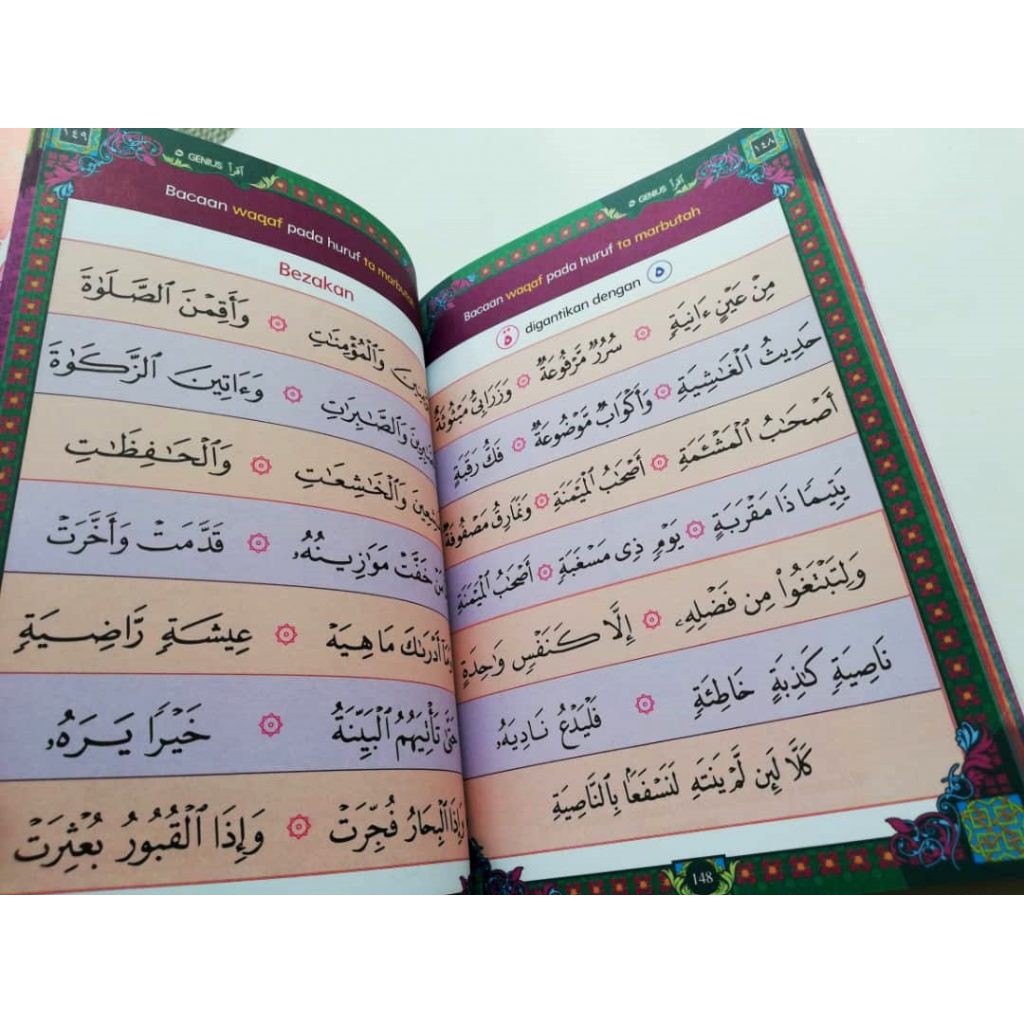 ١٤٨
اقرأ GENIUS ٥
Bacaan waqaf pada huruf ta marbutah
ة digantikan dengan ه
مِنْ عَيْنٍ ءَانِيَةٍ ۞ سُرُرٌ مَّرْفُوعَةٌ ۞ وَزَرَابِيُّ مَبْثُوثَةٌ
حَدِيثُ ٱلْغَـٰشِيَةِ ۞ وَأَكْوَابٌ مَّوْضُوعَةٌ ۞ فَكُّ رَقَبَةٍ
أَصْحَـٰبُ ٱلْمَشْـَٔمَةِ ۞ أَصْحَـٰبُ ٱلْمَيْمَنَةِ ۞ وَنَمَارِقُ مَصْفُوفَةٌ
يَتِيمًا ذَا مَقْرَبَةٍ ۞ يَوْمٍ ذِى مَسْغَبَةٍ ۞ أَصْحَـٰبُ ٱلْمَيْمَنَةِ
وَلِتَبْتَغُوا۟ مِن فَضْلِهِۦ ۞ إِلَّا كَنَفْسٍ وَٰحِدَةٍ
نَاصِيَةٍ كَـٰذِبَةٍ خَاطِئَةٍ ۞ فَلْيَدْعُ نَادِيَهُۥ
كَلَّا لَئِن لَّمْ يَنتَهِ لَنَسْفَعًۢا بِٱلنَّاصِيَةِ
148
١٤٩
اقرأ GENIUS ٥
Bacaan waqaf pada huruf ta marbutah
Bezakan
وَٱلْمُؤْمِنَـٰتِ ۞ وَأَقِمْنَ ٱلصَّلَوٰةَ
وَٱلصَّـٰبِرَٰتِ ۞ وَءَاتِينَ ٱلزَّكَوٰةَ
وَٱلْخَـٰشِعَـٰتِ ۞ وَٱلْحَـٰفِظَـٰتِ
خَفَّتْ مَوَٰزِينُهُۥ ۞ قَدَّمَتْ وَأَخَّرَتْ
أَدْرَىٰكَ مَا هِيَهْ ۞ عِيشَةٍ رَّاضِيَةٍ
تَأْتِيَهُمُ ٱلْبَيِّنَةُ ۞ خَيْرًا يَرَهُۥ
وَإِذَا ٱلْبِحَارُ فُجِّرَتْ ۞ وَإِذَا ٱلْقُبُورُ بُعْثِرَتْ